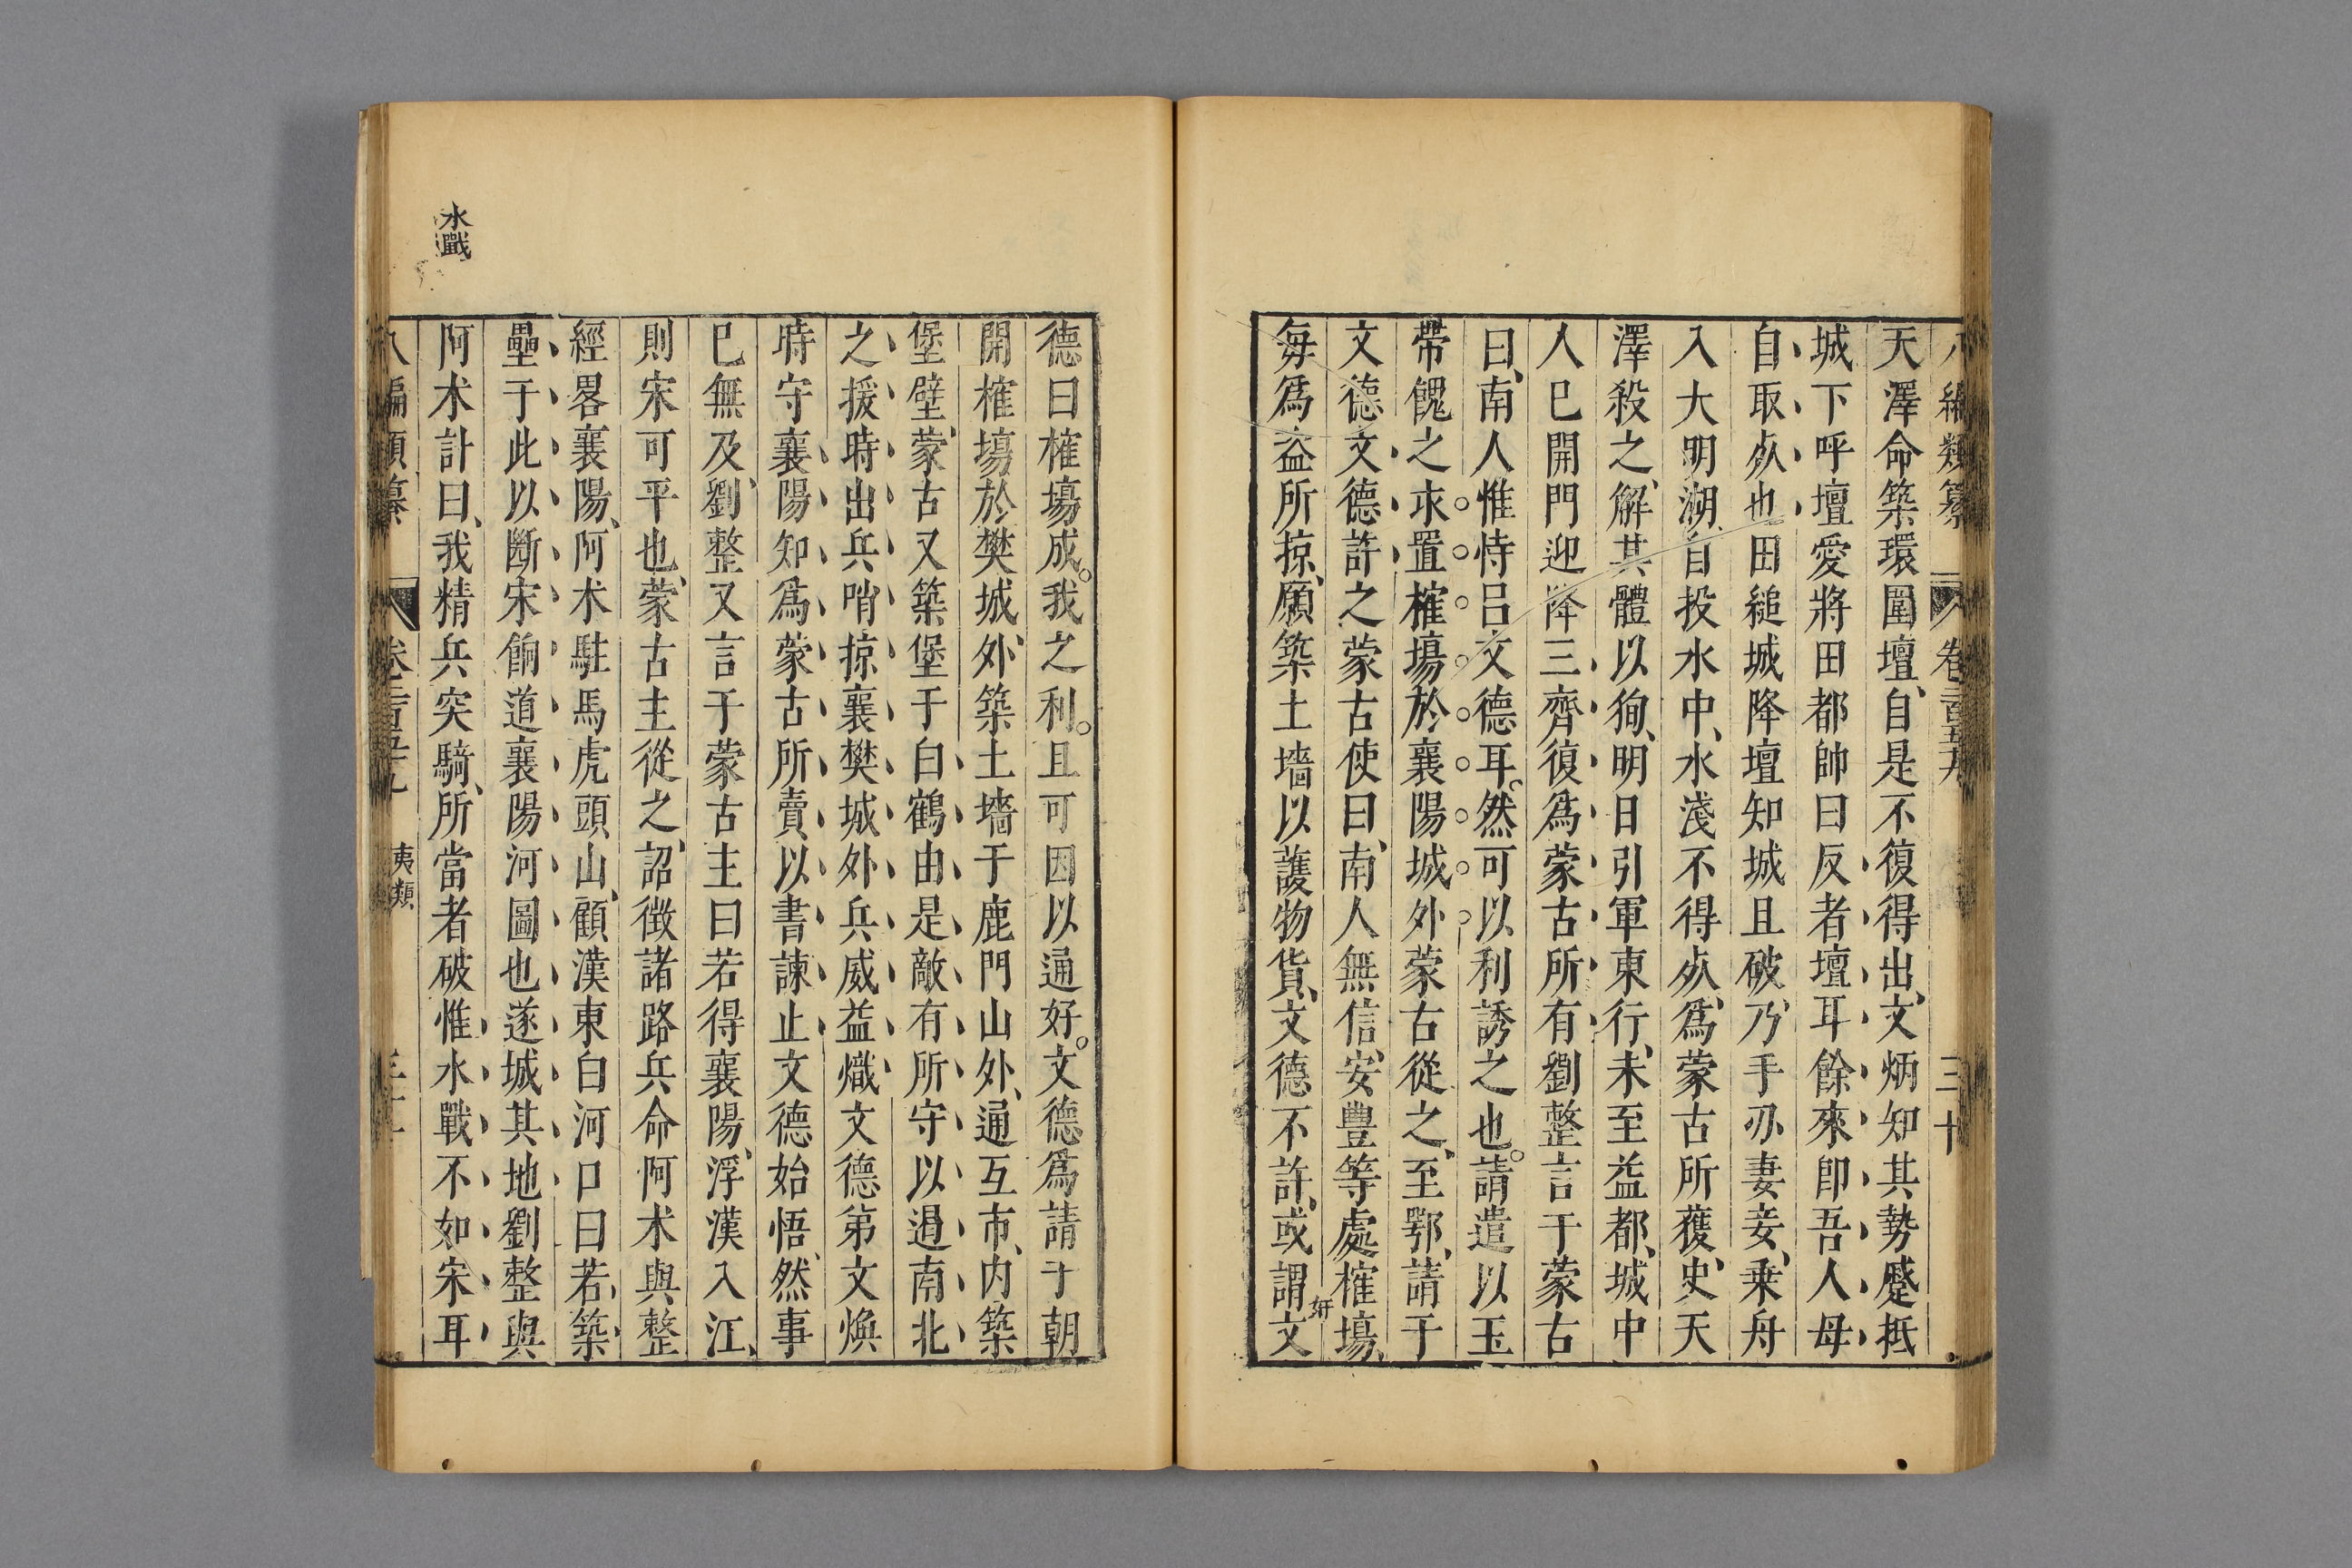 八編類纂 卷二百五十九 三十
天澤命築環圍壇自是不復得出文炳知其勢蹙抵
城下呼壇愛將田都帥曰反者壇耳餘來卽吾人母
自取死也田縋城降壇知城且破乃手刃妻妾乘舟
入大明湖自投水中水淺不得死爲蒙古所獲史天
澤殺之解其體以狥明日引軍東行未至益都城中
人巳開門迎降三齊復爲蒙古所有劉整言于蒙古
曰南人惟恃呂文德耳然可以利誘之也請遣以玉
帶餽之求置榷塲於襄陽城外蒙古從之至鄂請于
文德文德許之蒙古使曰南人無信安豐等處榷塲
每爲盗所掠願築土墻以護物貨文德不許或謂文
奸
德曰榷塲成我之利且可因以通好文德爲請于朝
開榷塲於樊城外築土墻于鹿門山外通互市内築
堡壁蒙古又築堡于白鶴由是敵有所守以遏南北
之援時出兵哨掠襄樊城外兵威益熾文德第文煥
時守襄陽知爲蒙古所賣以書諫止文德始悟然事
巳無及劉整又言于蒙古主曰若得襄陽浮漢入江
則宋可平也蒙古主從之詔徵諸路兵命阿术與整
經畧襄陽阿术駐馬虎頭山顧漢東白河口曰若築
壘于此以斷宋餉道襄陽河圖也遂城其地劉整與
阿术計曰我精兵突騎所當者破惟水戰不如宋耳
水戰
八編類纂 卷二百五十九 夷類 三十一